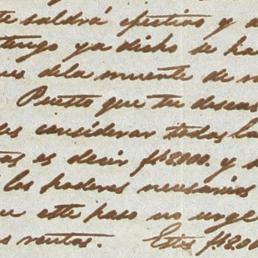 te saldrá efectivo y a
tengo ya dicho se ha
es dela muerte de m
Puesto que tu deseas
es considerar todas la
as es decir ƒ13000. y s
los poderes necesarios
ue este paso no urge
s rentas. Estos ƒ1300